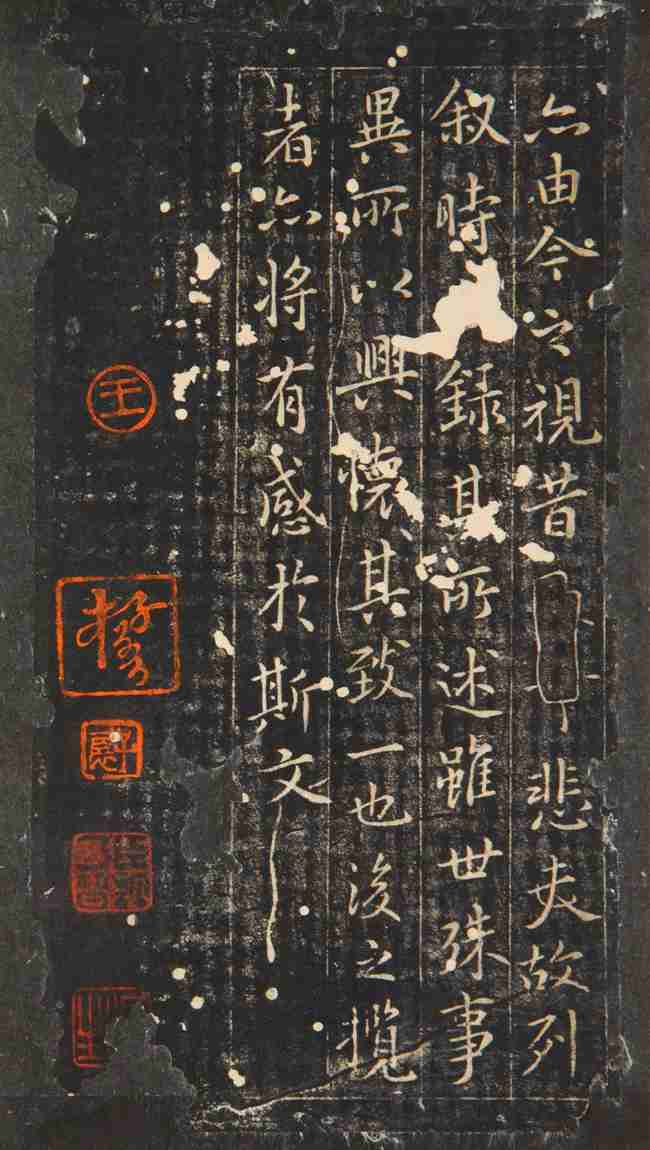 亦由今之視昔悲夫故列
叙時録其所述雖世殊事
異所以興懷其致一也後之攬
者亦将有感於斯文
王